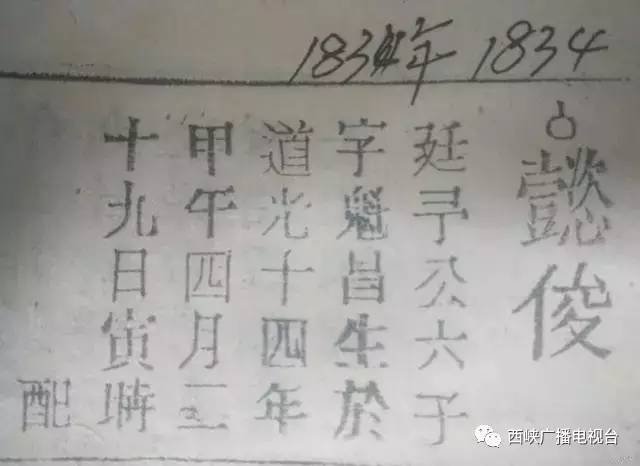 1834年 1834
懿俊
廷予公六子
字魁昌生於
道光十四年
甲午四月二
十九日寅時
配
西峡广播电视台